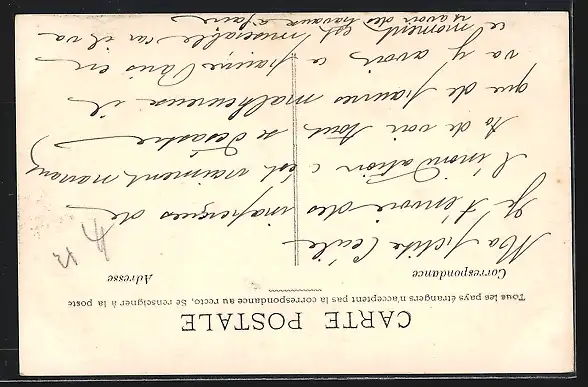 CARTE POSTALE
Tous les pays étrangers n'acceptent pas la correspondance au recto, Se renseigner à la poste
Correspondance
Adresse
Ma petite Cécile
Je t'envoie des de
l'inondation c'est vraiment navrant
to de voir tous se désastre
que de pauvres malheureux il
va y avoir ce pauvre Paris en
ce moment est misérable car il va
y avoir des travaux à faire